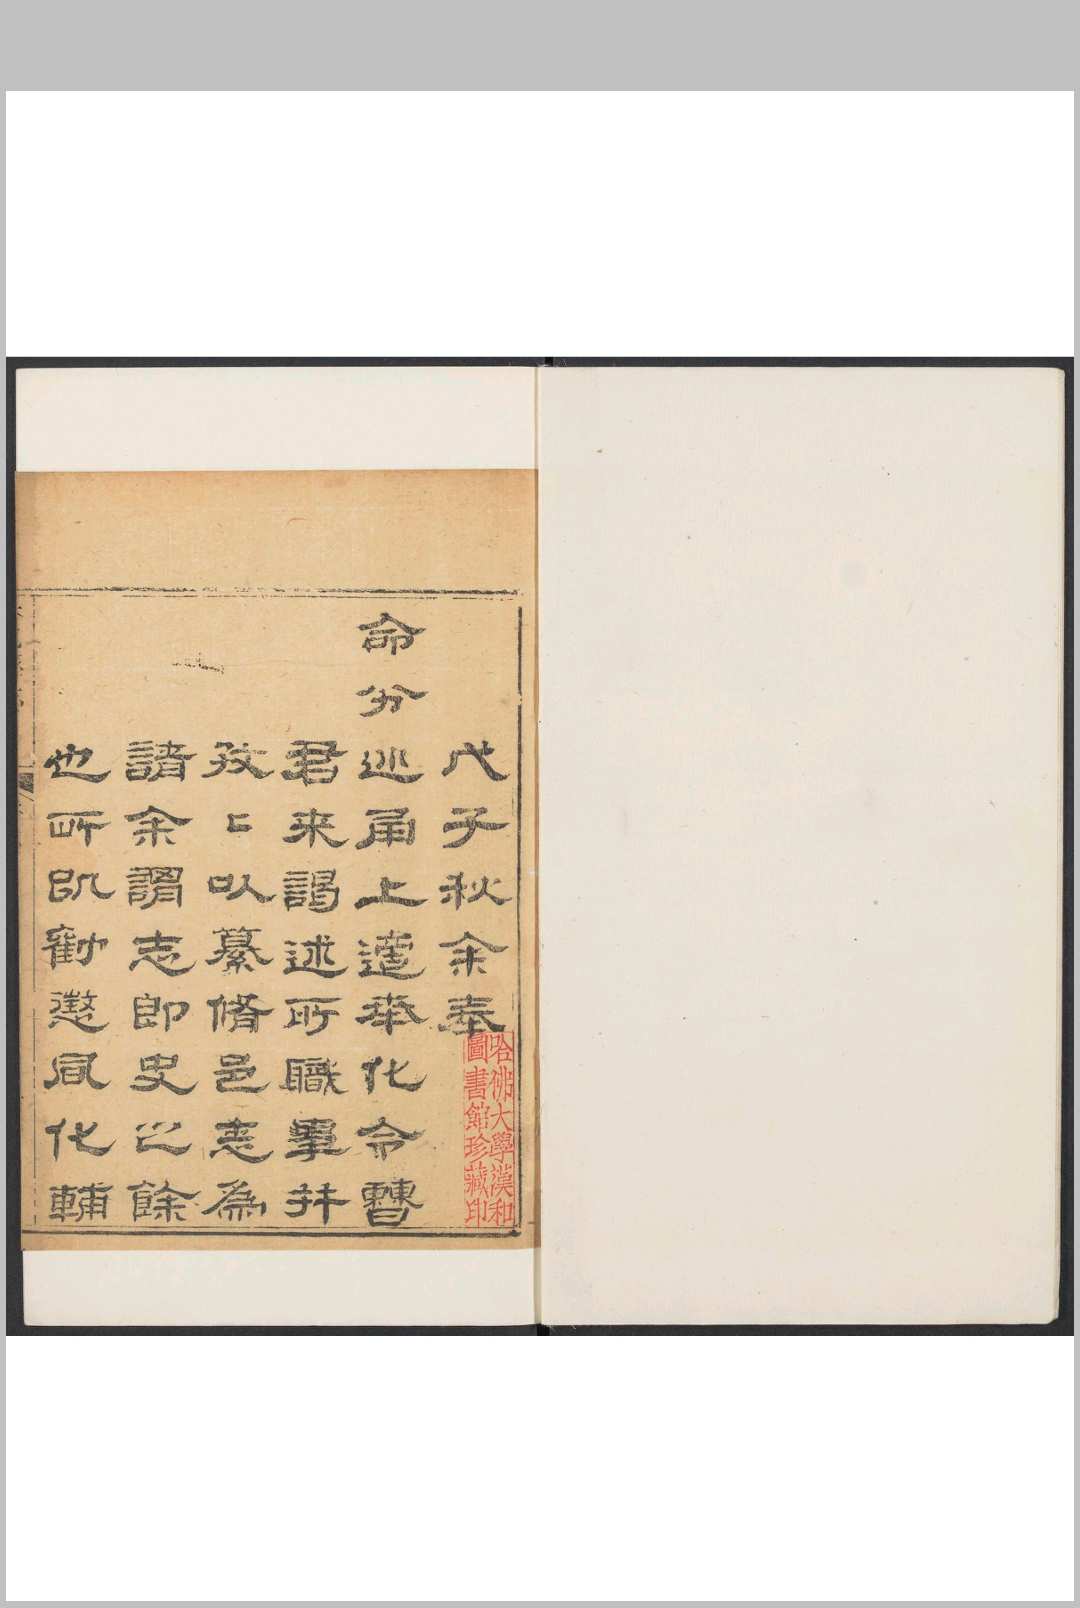 戊子秋余奉
命分巡甬上遵奉化令曹
君来謁述所職畢并
孜〻以纂脩邑志為
請余謂志即史之餘
也所㠯勸懲風化輔
哈佛大學漢和
圖書館珍藏印